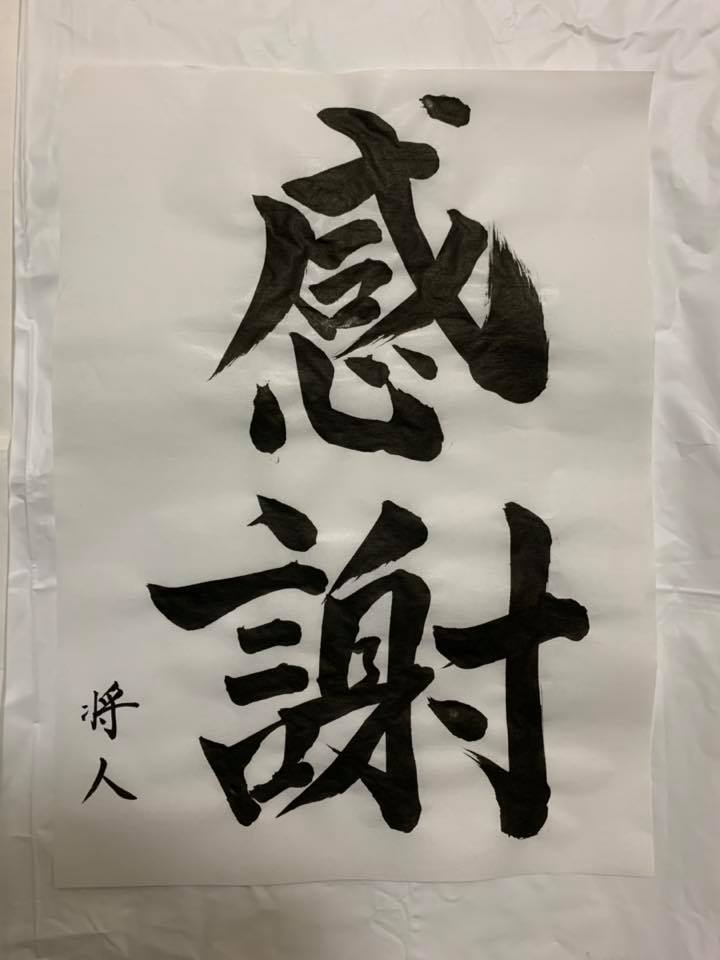 感謝
将人